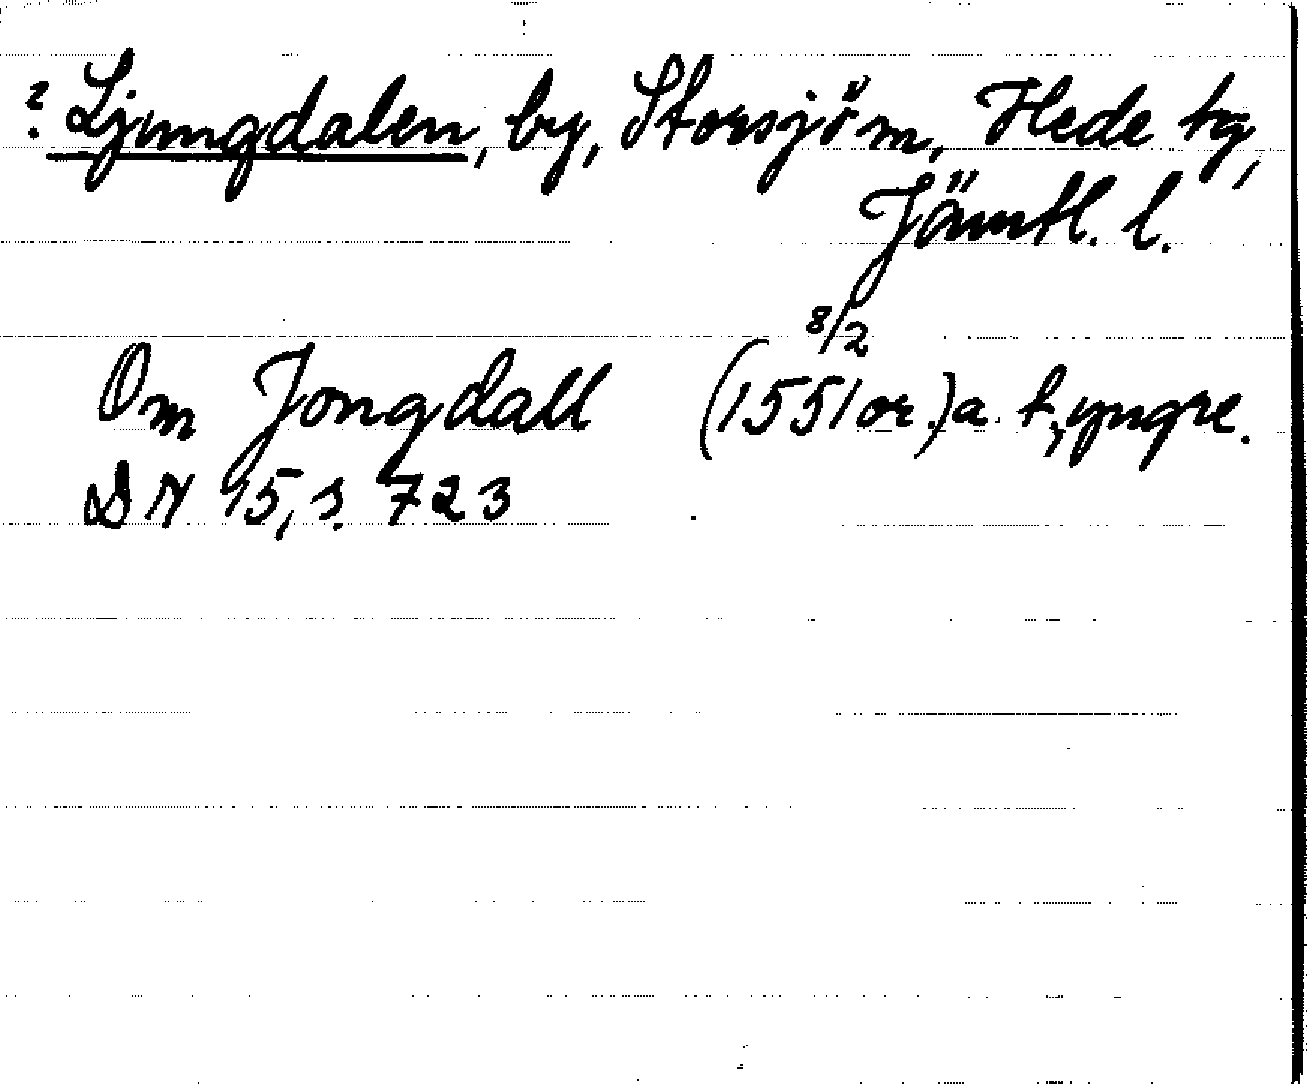 ? Ljungdalen, by, Storsjö sn, Hede tg,
Jämtl. l.
8/2
Om Jongdall (1551 or.) a. t., yngre.
DN 15, s. 723